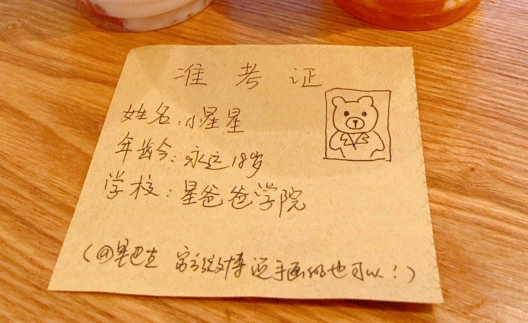 准考证
姓名:小星星
年龄:永远18岁
学校:星爸爸学院
(@星巴克 官方微博说手画的也可以!)